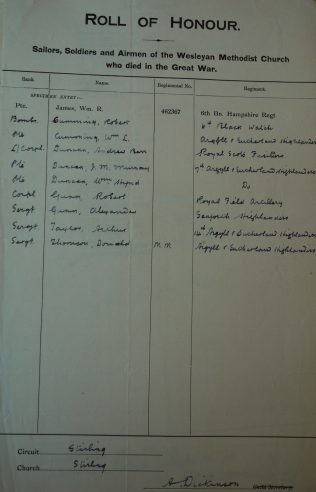 ROLL OF HONOUR.
Sailors, Soldiers and Airmen of the Wesleyan Methodist Church
who died in the Great War.
Rank. Name. Regimental No. Regiment.
SPECIMEN ENTRY:—
Pte. James, Wm. R. 462367 6th Bn. Hampshire Regt.
Bombr. Cumming, Robert 4th Black Watch
Pte Cumming Wm L. Argyll & Sutherland Highlanders
L/Corpl. Duncan, Andrew Royal Scots Fusiliers
Pte Duncan, J. M. Murray 7th Argyll & Sutherland Highlanders
Pte Duncan, Wm Do
Corpl Gunn, Robert Royal Field Artillery
Sergt Gunn, Alexander Seaforth Highlanders
Sergt Taylor, Arthur 14th Argyll & Sutherland Highlanders
Sergt Thomson, Donald M.M. Argyll & Sutherland Highlanders
Circuit Stirling
Church Stirling
A Dickinson